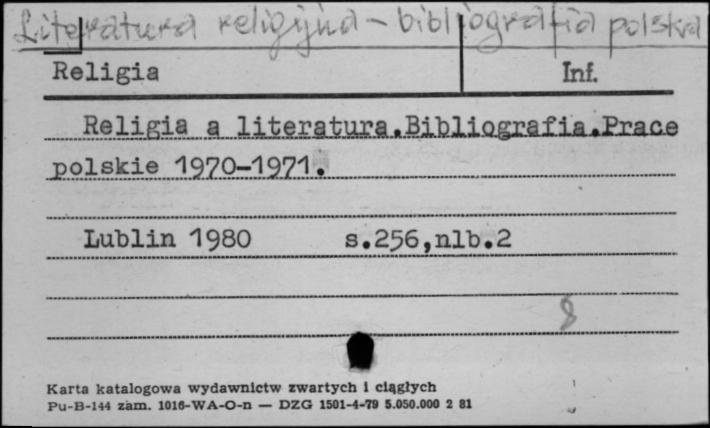 Literatura religijna - bibliografia polska
Religia Inf.
Religia a literatura.Bibliografia.Prace
polskie 1970-1971.
Lublin 1980 s.256,nlb.2
8
Karta katalogowa wydawnictw zwartych i ciągłych
Pu-B-144 zam. 1016-WA-O-n — DZG 1501-4-79 5.050.000 2 81